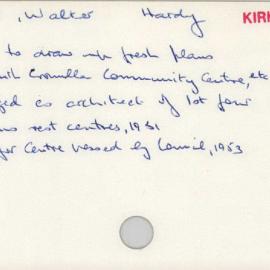 , Walter Hardy KIRK
to draw up fresh plans
Cronulla Community Centre, etc
as architect of 1st four
rest centres, 1951
Centre vessed by Council, 1953